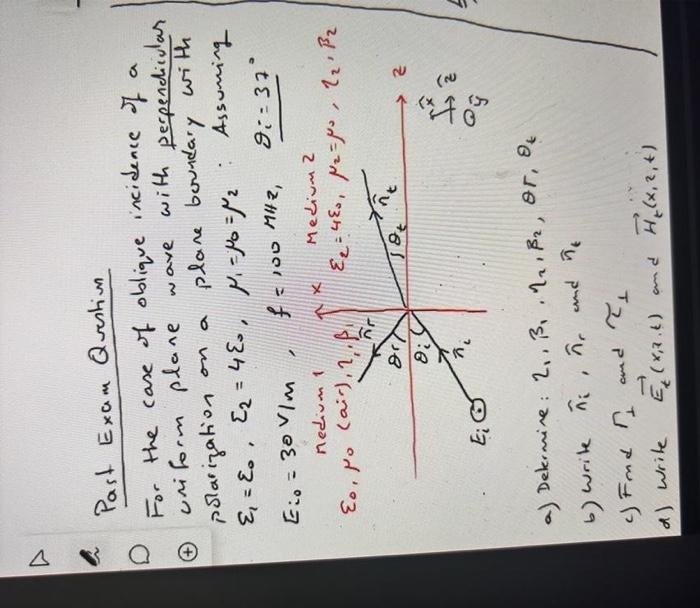 Past Exam Question
For the case of oblique incidence of a
uniform plane wave with perpendicular
polarization on a plane boundary with
ε₁ = ε₀, ε₂ = 4ε₀, μ₁ = μ₀ = μ₂ : Assuming
Eio = 30 V/m, f = 100 MHz, θi = 37°
medium 1
x
medium 2
ε₀, μ₀ (air), η₁, β₁
ε₂ = 4ε₀, μ₂ = μ₀, η₂, β₂
n̂r
θr
θi
n̂i
Ei
θt
n̂t
z
x̂
ẑ
ŷ
a) Determine: η₁, β₁, η₂, β₂, θr, θt
b) write n̂i, n̂r and n̂t
c) Find Γ⊥ and τ⊥
d) write E⃗t(x,z,t) and H⃗t(x,z,t)